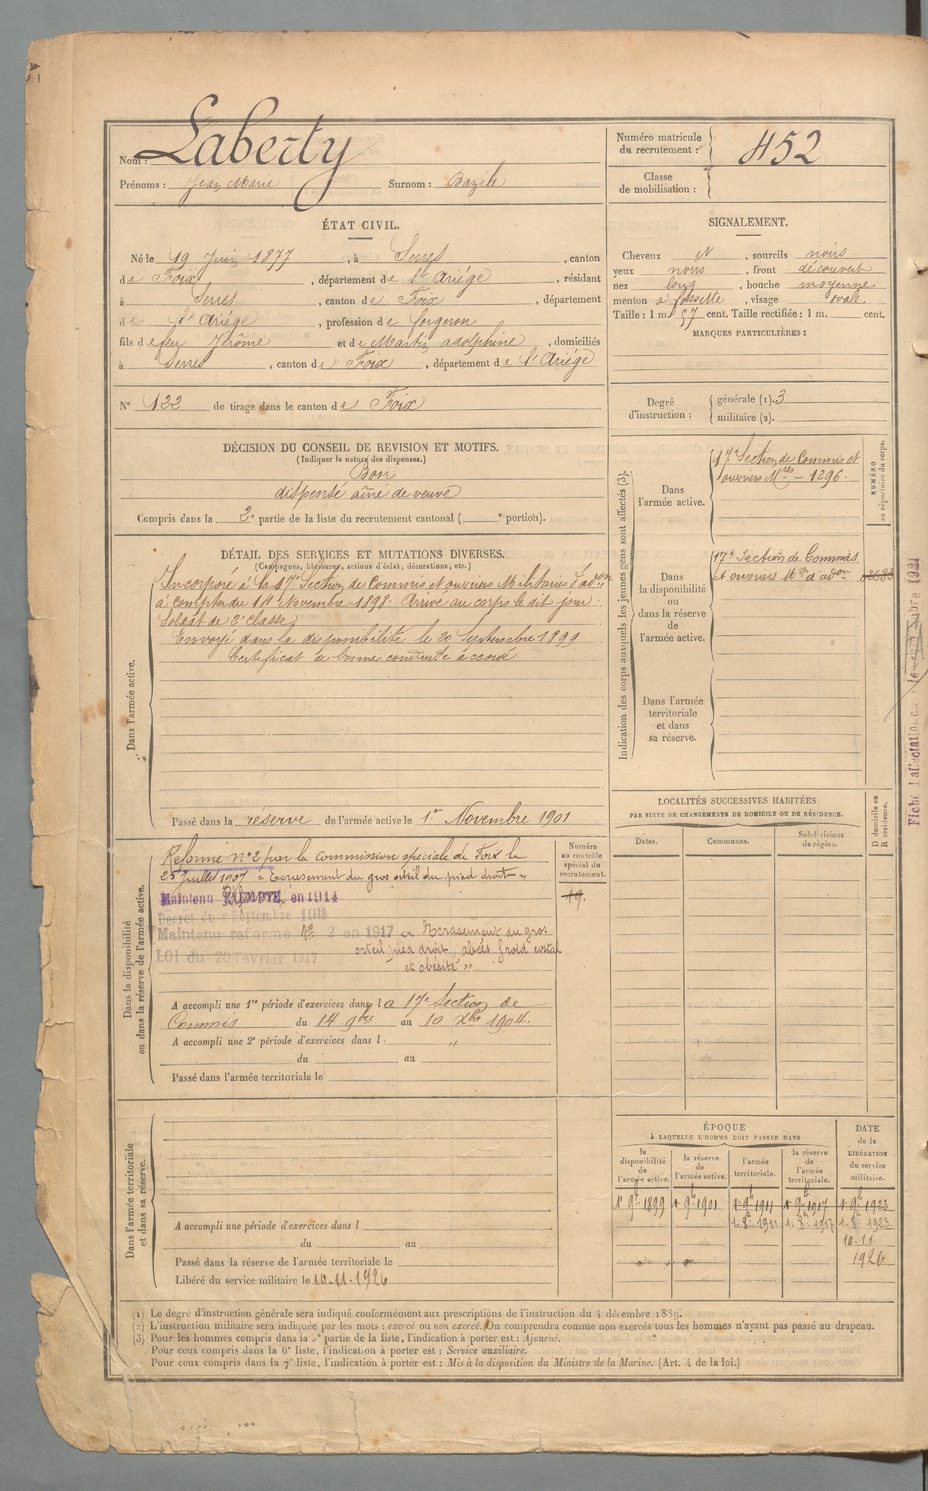 Nom : Laberty
Prénoms : Jean Marie Surnom : Bazile
Numéro matricule du recrutement : 452
Classe de mobilisation :
ÉTAT CIVIL.
Né le 19 Juin 1877, à Serres, canton
de Foix, département de l'Ariége, résidant
à Serres, canton de Foix, département
de l'Ariége, profession de forgeron
fils de feu Jérôme et de Martin adolphine, domiciliés
à Serres, canton de Foix, département de l'Ariége
N° 122 de tirage dans le canton de Foix
SIGNALEMENT.
Cheveux N, sourcils noirs
yeux noirs, front découvert
nez long, bouche moyenne
menton à fossette, visage ovale.
Taille : 1 m 57 cent. Taille rectifiée : 1 m. cent.
MARQUES PARTICULIÈRES :
Degré d'instruction : générale (1). 3
militaire (2).
DÉCISION DU CONSEIL DE REVISION ET MOTIFS.
(Indiquer la nature des dispenses.)
Bon
dispensé aîné de veuve
Compris dans la 2e partie de la liste du recrutement cantonal ( e portion).
DÉTAIL DES SERVICES ET MUTATIONS DIVERSES.
(Campagnes, blessures, actions d'éclat, décorations, etc.)
Dans l'armée active.
Incorporé à la 17e Section de Commis et ouvriers Militaires d'adon
à compter du 14 Novembre 1898. Arrivé au corps le dit jour.
Soldat de 2e classe,
Envoyé dans la disponibilité le 20 Septembre 1899
Certificat de bonne conduite accordé
Passé dans la réserve de l'armée active le 1er Novembre 1901
Indication des corps auxquels les jeunes gens sont affectés (3).
NUMÉRO au répertoire du corps.
Dans l'armée active.
17e Section de Commis et
ouvriers Mres - 1296.
Dans la disponibilité ou dans la réserve de l'armée active.
17e Section de Commis
et ouvriers Mres d'adon
Dans l'armée territoriale et dans sa réserve.
LOCALITÉS SUCCESSIVES HABITÉES
PAR SUITE DE CHANGEMENTS DE DOMICILE OU DE RÉSIDENCE.
Dates. Communes. Subdivisions de région. D domicile ou R résidence.
Dans la disponibilité ou dans la réserve de l'armée active.
Numéro au contrôle spécial du recrutement.
19.
Réformé n° 2 par la commission spéciale de Foix le
25 Juillet 1907 « Ecrasement du gros orteil du pied droit »
Maintenu en 1914
Decret du 9 Septembre 1914
Maintenu reforme no 2 en 1917 « Ecrasement du gros
orteil pied droit, abcès froid costal
LOI du 20 Fevrier 1917
et obésité »
A accompli une 1re période d'exercices dans la 17e Section de
Commis du 14 9bre au 10 Xbre 1904.
A accompli une 2e période d'exercices dans l "
du au
Passé dans l'armée territoriale le
Dans l'armée territoriale et dans sa réserve.
A accompli une période d'exercices dans l
du au
Passé dans la réserve de l'armée territoriale le
Libéré du service militaire le 10-11-1926
ÉPOQUE
À LAQUELLE L'HOMME DOIT PASSER DANS
DATE de la LIBÉRATION du service militaire.
la disponibilité de l'armée active. la réserve de l'armée active. l'armée territoriale. la réserve de l'armée territoriale.
1r 9b 1899 1 9b 1901 1 9b 1911 1 9b 1917 1 9b 1923
1-8-1911 1-8-1917 1-8-1923
10-11
1926
(1) Le degré d'instruction générale sera indiqué conformément aux prescriptions de l'instruction du 4 décembre 1889.
(2) L'instruction militaire sera indiquée par les mots : exercé ou non exercé. On comprendra comme non exercés tous les hommes n'ayant pas passé au drapeau.
(3) Pour les hommes compris dans la 5e partie de la liste, l'indication à porter est : Ajourné.
Pour ceux compris dans la 6e liste, l'indication à porter est : Service auxiliaire.
Pour ceux compris dans la 7e liste, l'indication à porter est : Mis à la disposition du Ministre de la Marine. (Art. 4 de la loi.)